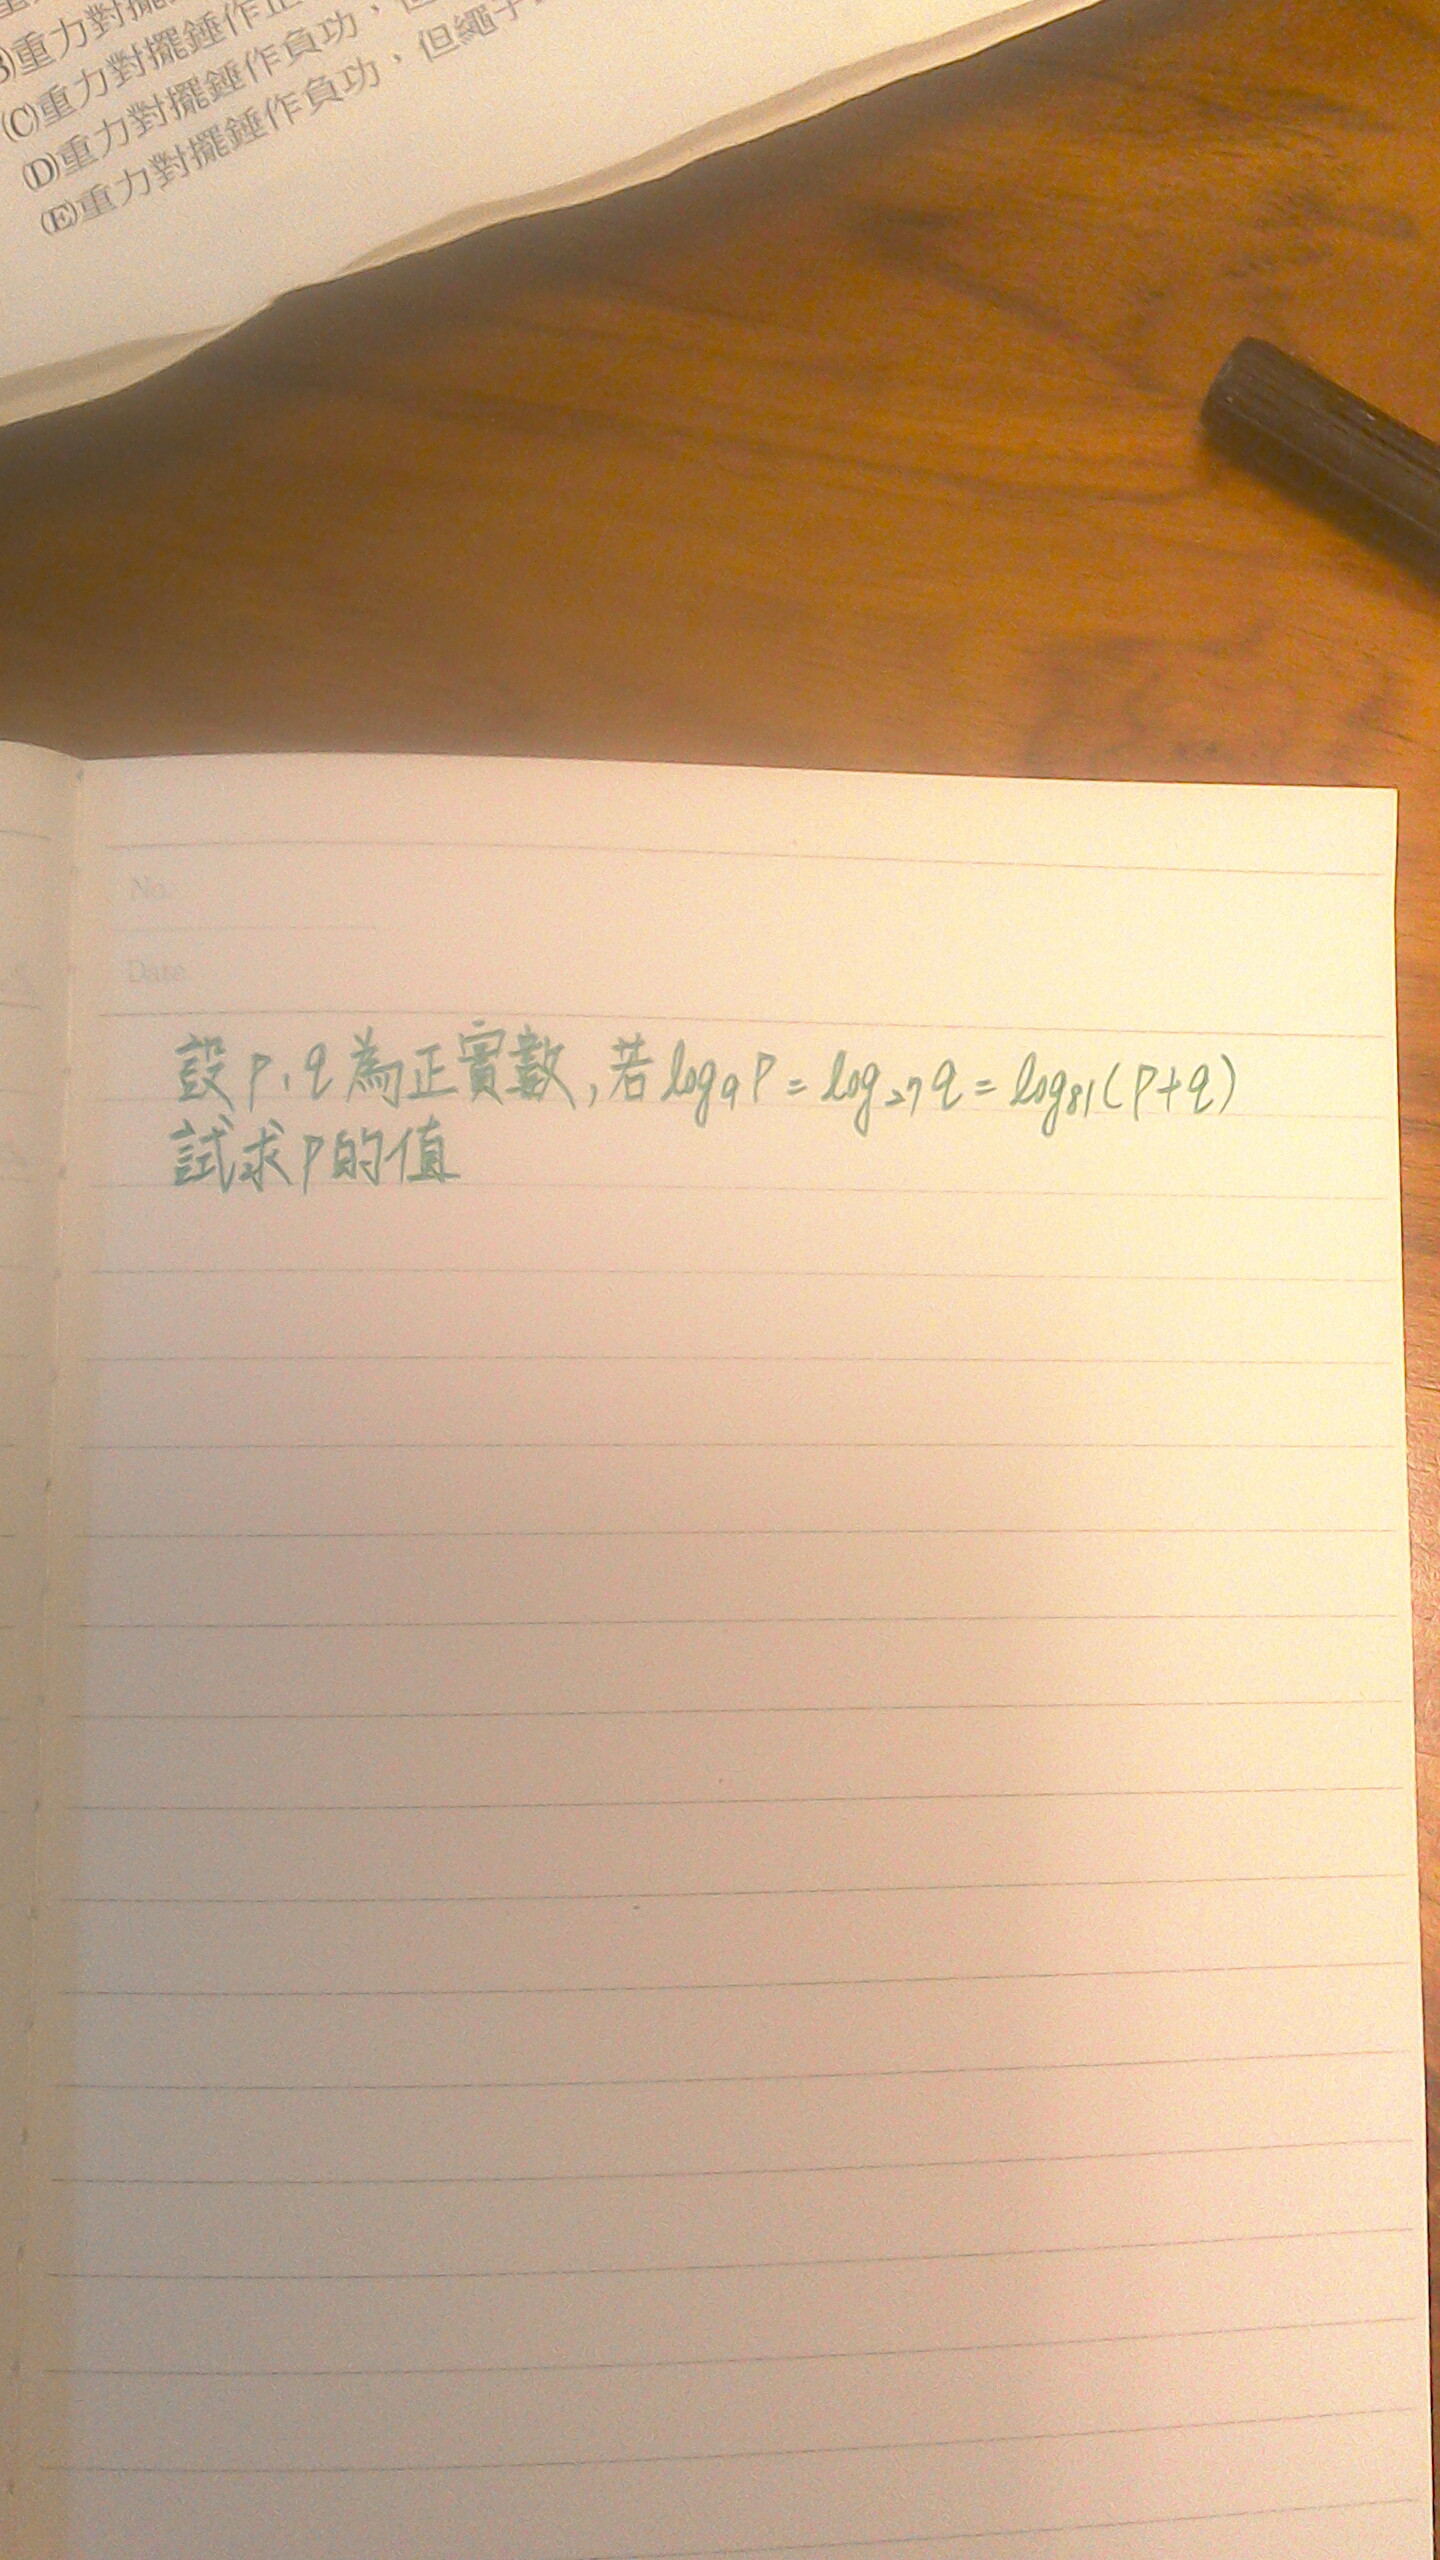 (B)重力對擺
(C)重力對擺錘作正
(D)重力對擺錘作負功，但
(E)重力對擺錘作負功，但繩子
No.
Date
設p、q為正實數,若log₉p=log₂₇q=log₈₁(p+q)
試求p的值